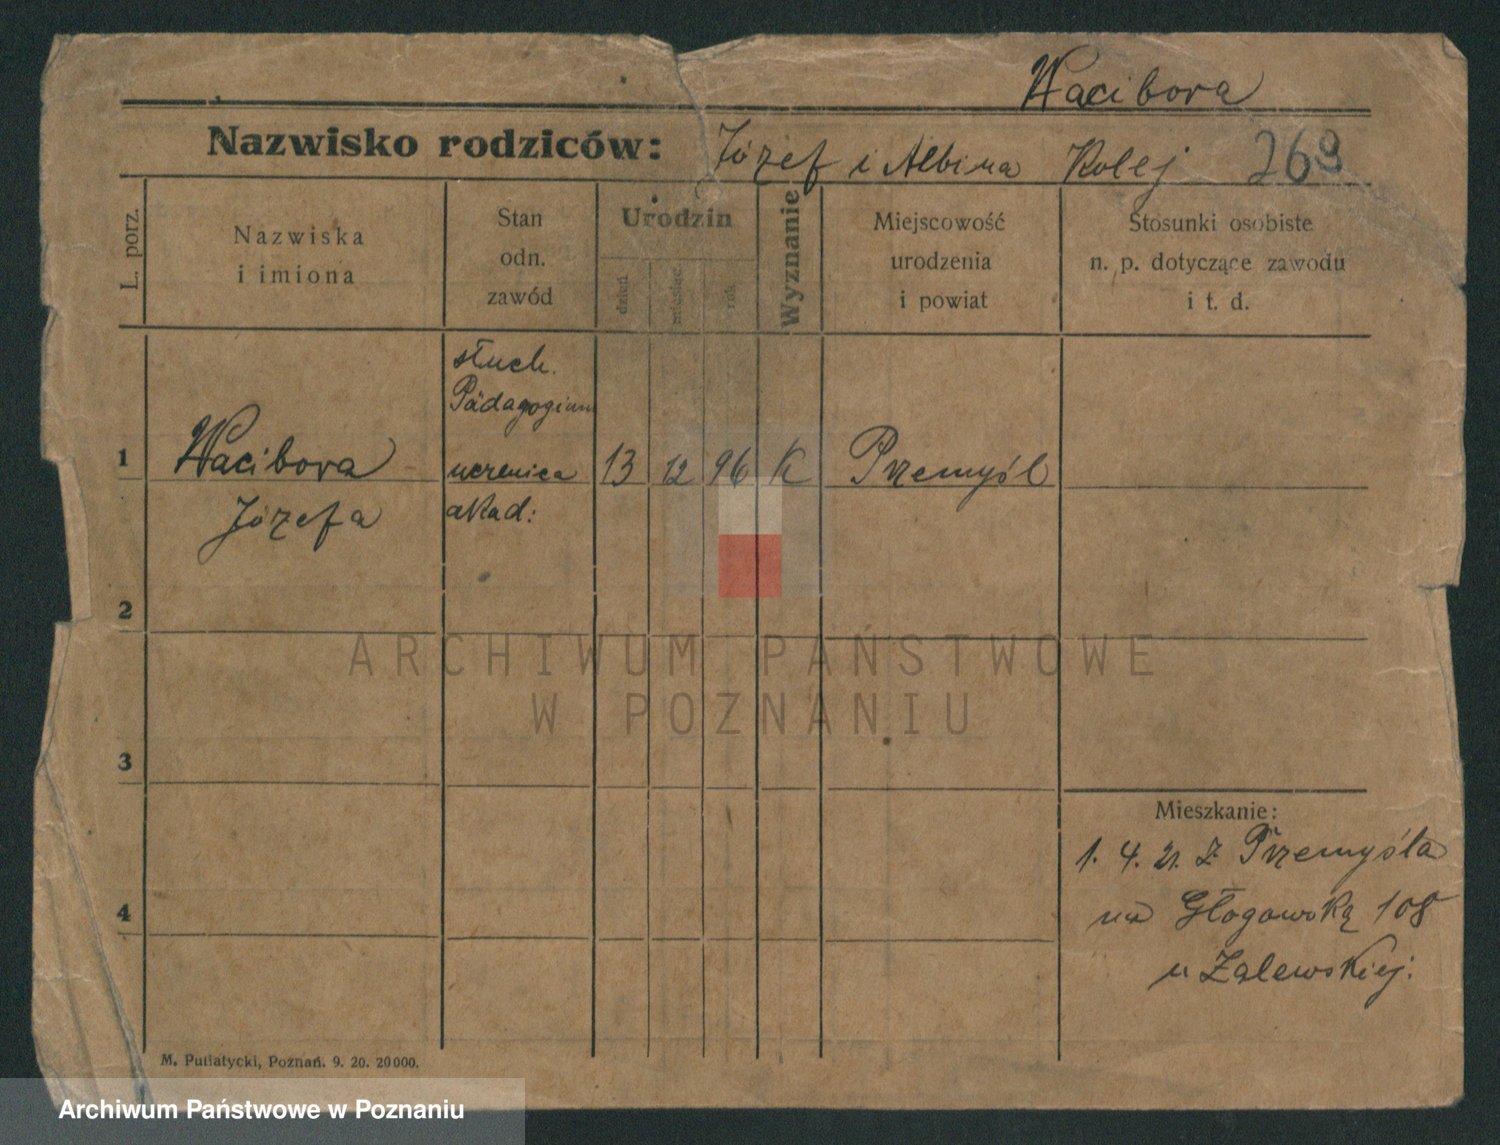 Wacibora
Nazwisko rodziców: Józef i Albina Kolej 269
L. porz.
Nazwiska
i imiona
Stan
odn.
zawód
Urodzin
dzień
miesiąc
rok
Wyznanie
Miejscowość
urodzenia
i powiat
Stosunki osobiste
n. p. dotyczące zawodu
i t. d.
słuch.
Pädagogium
1 Wacibora uczenica 13 12 96 K Przemyśl
Józefa akad:
2
3
4
Mieszkanie:
1. 4. 21. z Przemyśla
na Głogowską 108
u Zalewskiej.
M. Putiatycki, Poznań. 9. 20. 20000.
ARCHIWUM PAŃSTWOWE
W POZNANIU
Archiwum Państwowe w Poznaniu